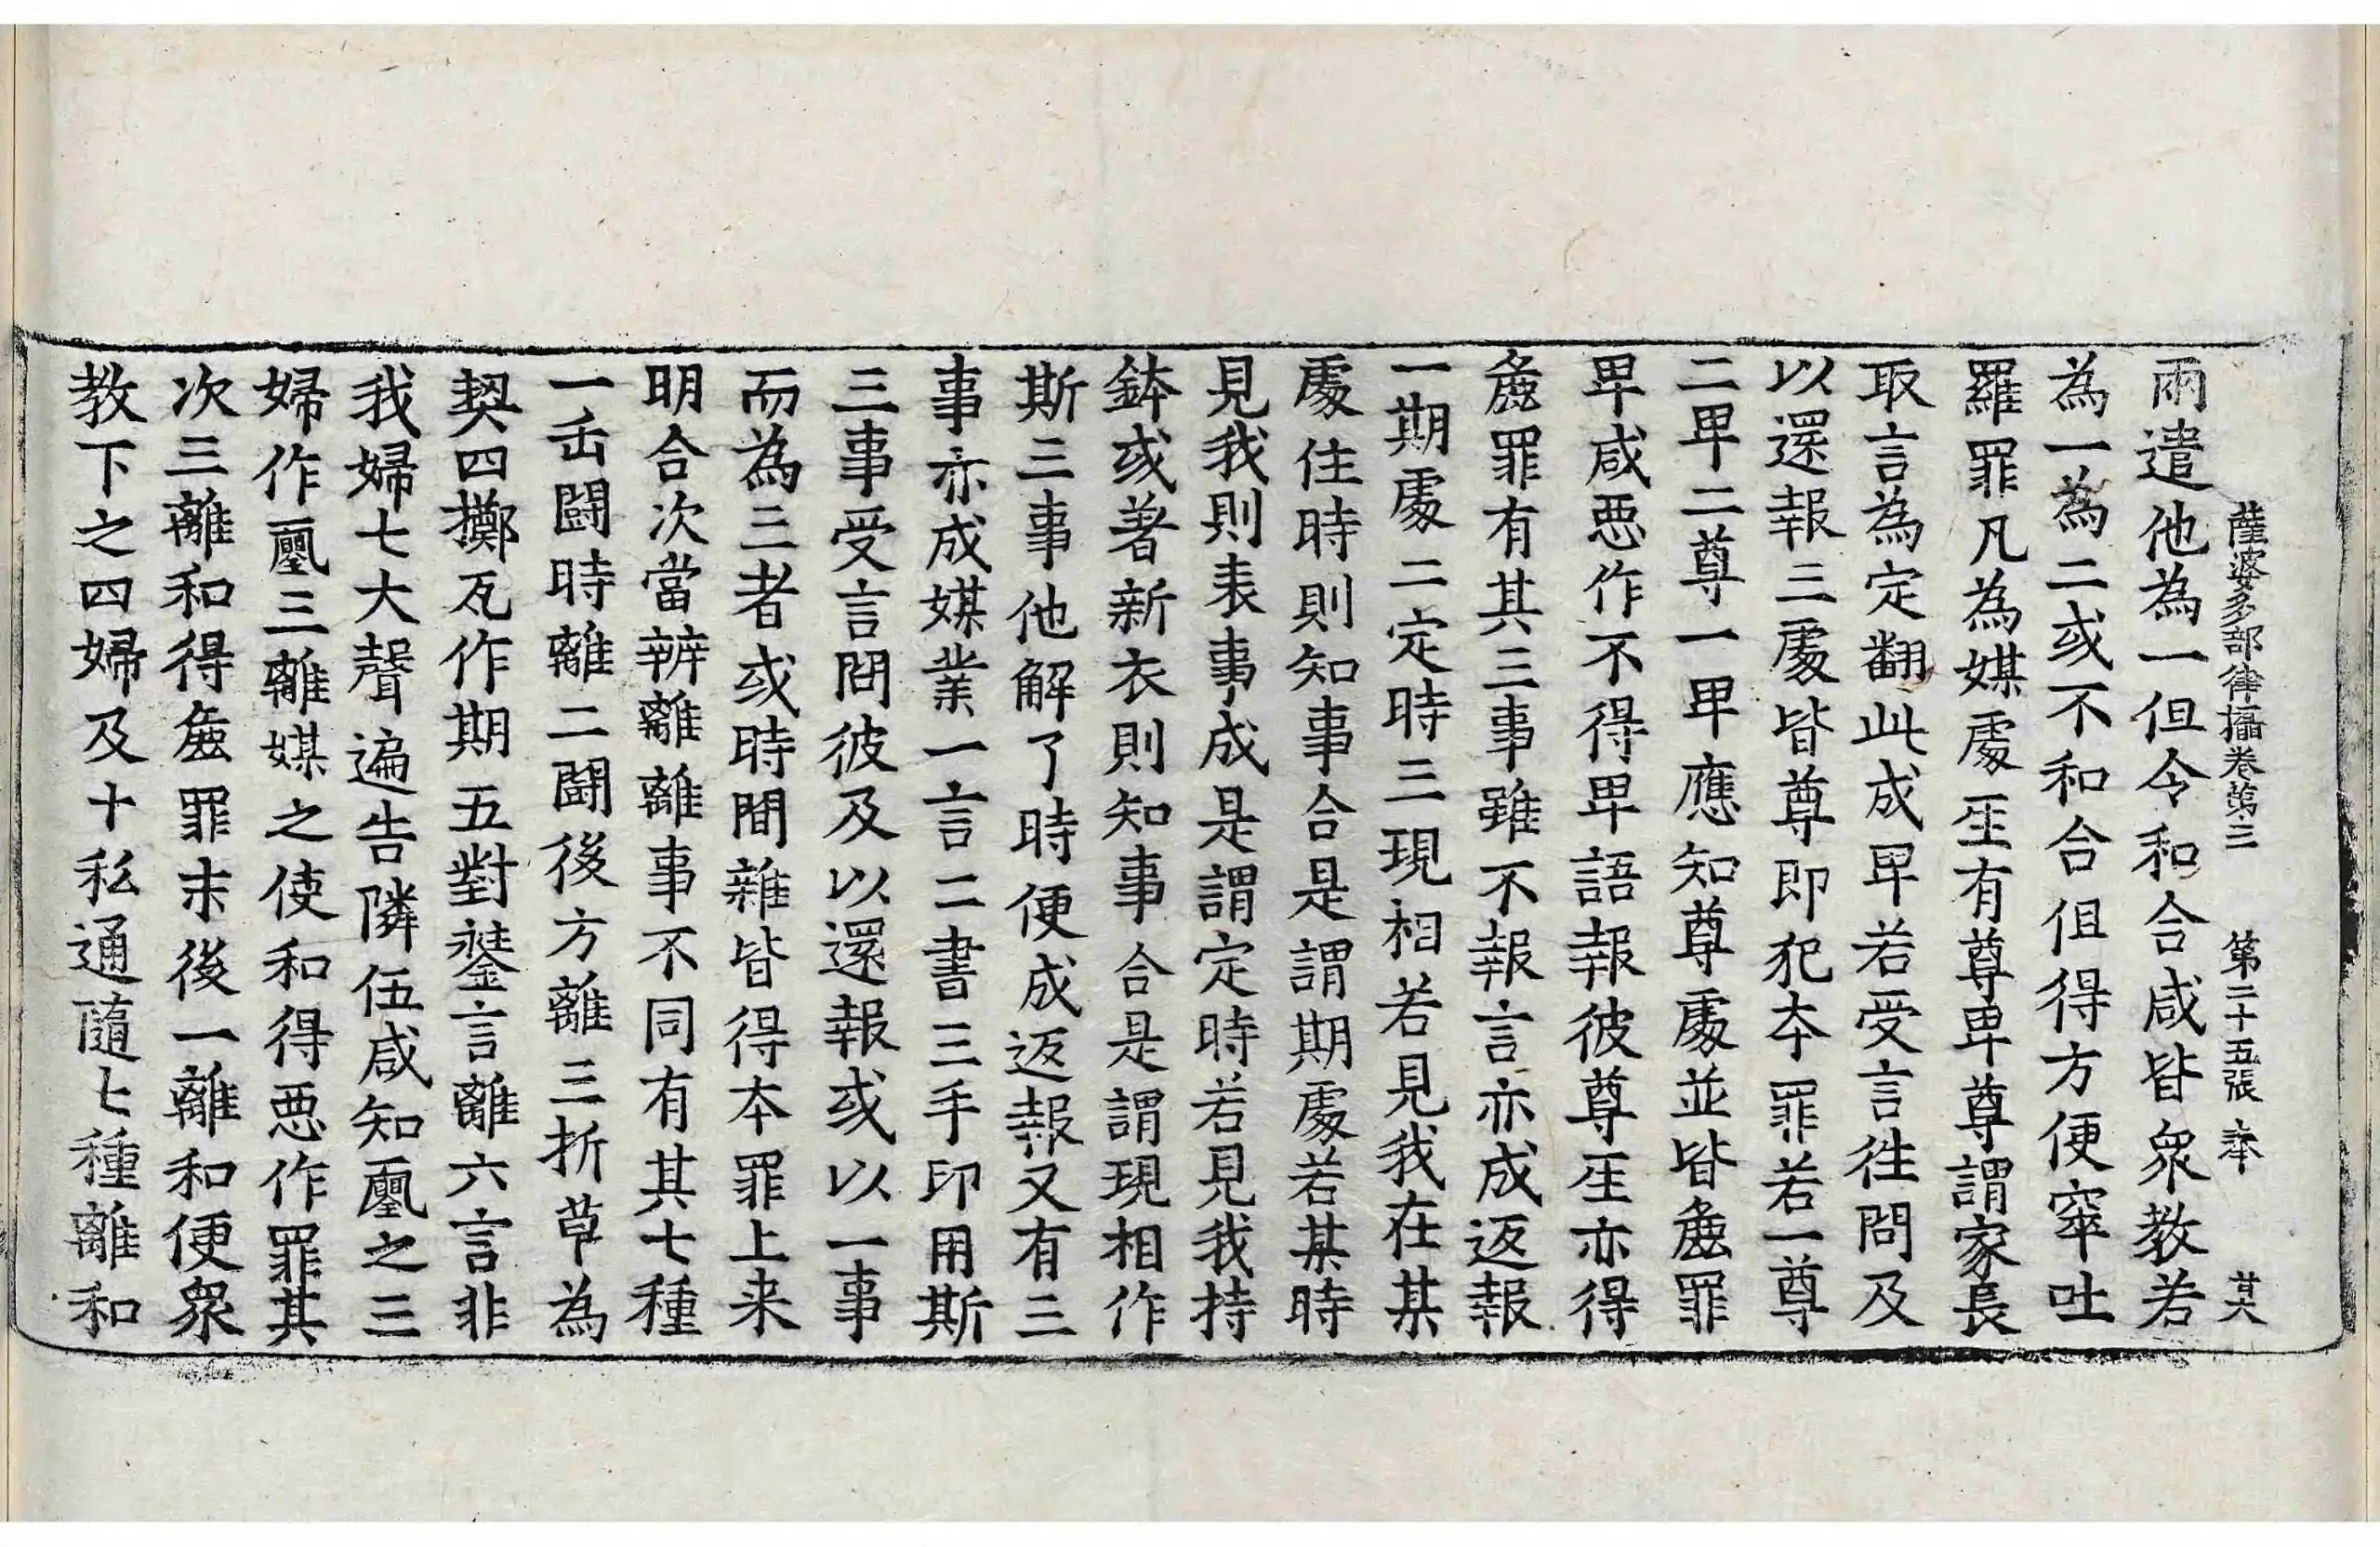 薩婆多部律攝卷第三　第二十五張　奉
兩遣他為一但令和合咸皆衆教若
為一為二或不和合但得方便窣吐
羅罪凡為媒處𤯔有尊卑尊謂家長
取言為定翻此成卑若受言徃問及
以還報三處皆尊即犯夲罪若一尊
二卑二尊一卑應知尊處並皆麁罪
卑咸惡作不得卑語報彼尊𤯔亦得
麁罪有其三事雖不報言亦成返報
一期處二定時三現相若見我在某
處住時則知事合是謂期處若某時
見我則表事成是謂定時若見我持
鉢或著新衣則知事合是謂現相作
斯三事他解了時便成返報又有三
事亦成媒業一言二書三手印用斯
三事受言問彼及以還報或以一事
而為三者或時間雜皆得夲罪上来
明合次當辨離離事不同有其七種
一𠙺鬪時離二鬪後方離三折草為
契四擲瓦作期五對𨭻言離六言非
我婦七大聲遍告隣伍咸知𡔈之三
婦作𡔈三離媒之使和得惡作罪其
次三離和得麁罪末後一離和便衆
教下之四婦及十私通隨七種離和